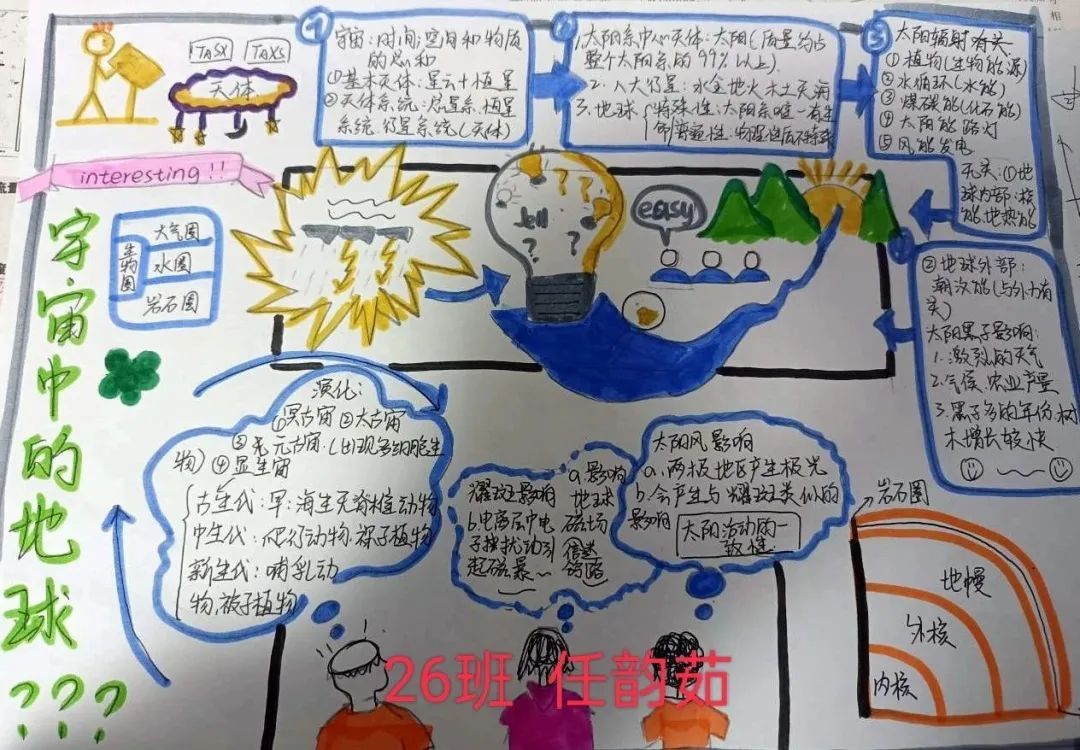 TaSX
TaXS
天体
interesting!!
宇宙中的地球???
1
宇宙:时间,空间和物质
的总和
①基本天体:星云+恒星
②天体系统:总星系,恒星
系统,行星系统(天体)
1.太阳系中心天体:太阳(质量约占
整个太阳系的99%以上)
2.八大行星:水金地火木土天海
3.地球
特殊性:太阳系唯一有生
命
普遍性:物理性质不特殊
3
太阳辐射有关
①植物(生物能源)
②水循环(水能)
③煤炭能(化石能)
④太阳能路灯
⑤风能发电
无关:①地
球内部:核
能地热能
②地球外部:
潮汐能(与外力有
关)
太阳黑子影响:
1.激烈的天气
2.气候,农业产量
3.黑子多的年份,树
木增长较快
生物圈
大气圈
水圈
岩石圈
? ?
? ?
easy
演化:
①冥古宙②太古宙
③元古宙:(出现多细胞生
物)④显生宙
古生代:早:海生无脊椎动物
中生代:爬行动物.裸子植物
新生代:哺乳动
物,被子植物
耀斑影响
a.影响
地球
磁场
b.电离层中电
子扰动引
起磁暴
太阳风影响
a.两极地区产生极光
b.会产生与耀斑类似的
影响
太阳活动的一
致性
岩石圈
地幔
外核
内核
26班 任韵茹